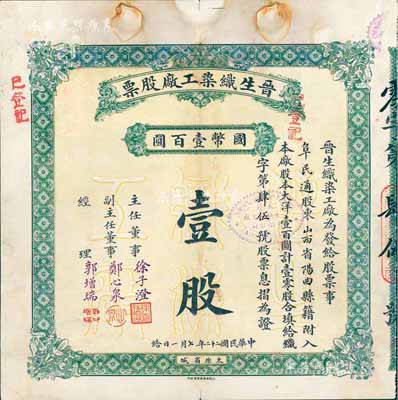 晋生織染工廠股票
國幣壹百圓
晋生織染工廠為發給股票事
阜民通股東山西省陽曲縣籍附入
本廠股本大洋壹百圓計壹零股合填給織
字第肆伍號股票息摺為證
壹股
主任董事 徐子澄
副主任董事 鄭心泉
經理 郭增瑞
中華民國二十二年七月一日給
太原省城
已登記